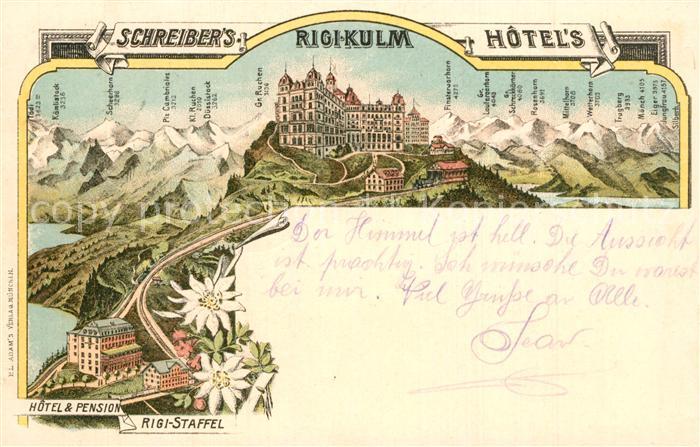 SCHREIBER'S RIGI-KULM HÔTEL'S
Tödi 3623 m
Kämlistock 3238
Scheerhorn 3296
Piz Cambriales 3212
Kl. Ruchen
Düssistock 3262
Gr. Ruchen 3136
Finsteraarhorn 4275
Gr. Lauteraarhorn 4043
Gr. Schreckhörner 4080
Rosenhorn 3691
Mittelhorn 3708
Wetterhorn 3703
Trugberg 3933
Mönch 4105
Eiger 3975
Jungfrau 4167
Silberh.
Der Himmel ist hell. Die Aussicht
ist prachtig. Ich wünsche Du warest
bei mir. Viel Grüsse an Alle.
Jean.
HÔTEL & PENSION
RIGI-STAFFEL
H.L. ADAM'S VERLAG, MÜNCHEN.